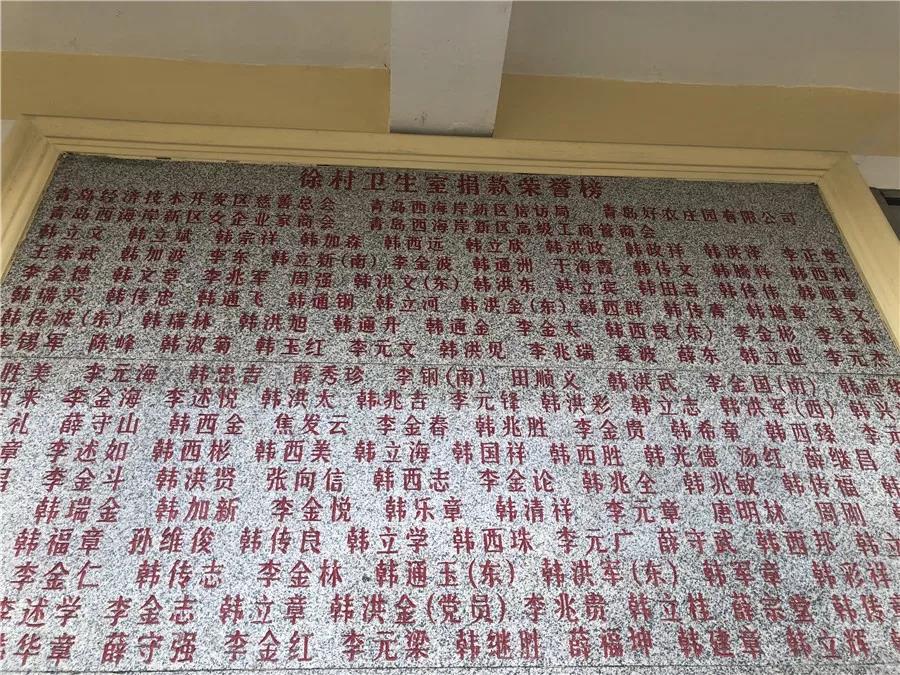 徐村卫生室捐款荣誉榜
青岛经济技术开发区慈善总会 青岛西海岸新区信访局 青岛好农庄园有限公司
青岛西海岸新区女企业家商会 青岛西海岸新区高级工商管商会
韩立文 韩立斌 韩宗祥 韩加森 韩西远 韩立欣 韩洪政 韩政祥 韩洪泽 李正堂
王森武 韩加波 李东 韩立新(南) 李金波 韩通洲 于海霞 韩传文 韩腾科 韩西利
李金德 韩文章 李兆军 周强 韩洪文(东) 韩洪东 韩立宾 韩田吉 韩传伟 韩顺章
韩瑞兴 韩传忠 韩通飞 韩通钢 韩立河 韩洪金(东) 韩西群 韩传青 韩增章 李文
韩传波(东) 韩瑞林 韩洪旭 韩通升 韩通金 李金太 韩西良(东) 李金彬 李金森
李锡军 陈峰 韩淑菊 韩玉红 李元文 韩洪见 李兆瑞 姜波 薛东 韩立世 李元杰
胜美 李元海 韩忠吉 薛秀珍 李钢(南) 田顺义 韩洪武 李金国(南) 韩通华
西来 李金海 李述悦 韩洪太 韩兆吉 李元锋 韩洪彩 韩立志 韩洪军(西) 韩兴
礼 薛守山 韩西金 焦发云 李金春 韩兆胜 李金贵 韩希章 韩西臻 李元
章 李述如 韩西彬 韩西美 韩立海 韩国祥 韩西胜 韩光德 汤红 薛继昌
李金斗 韩洪贤 张向信 韩西志 李金论 韩兆全 韩兆敏 韩传福 韩
韩瑞金 韩加新 李金悦 韩乐章 韩清祥 李元章 唐明林 周刚
韩福章 孙维俊 韩传良 韩立学 韩西珠 李元广 薛守武 韩西邦 韩立
李金仁 韩传志 李金林 韩通玉(东) 韩洪军(东) 韩军章 韩彩祥
李述学 李金志 韩立章 韩洪金(党员) 李兆贵 韩立柱 薛宗堂 韩传
韩华章 薛守强 李金红 李元梁 韩继胜 薛福坤 韩建章 韩立辉 韩